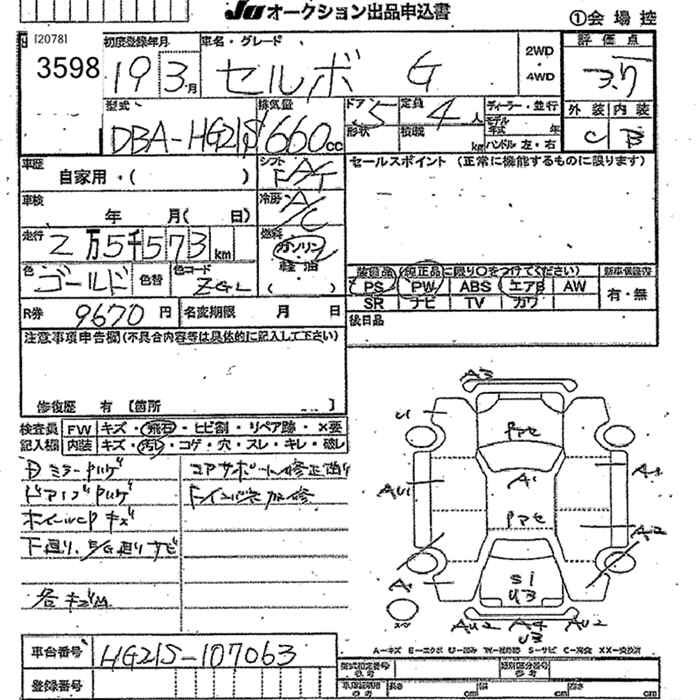 JU オークション出品申込書
①会場控
120781
3598
初度登録年月
車名・グレード
19 3月
セルボ G
2WD
・
4WD
評価点
3.7
外装 内装
C B
型式
排気量
ドア 5 定員 4人
ディーラー・並行
DBA-HG21S 660cc
形状
積載 kg
モデル
年式 年
ハンドル 左・右
車歴
自家用・( )
シフト
FAT
セールスポイント (正常に機能するものに限ります)
車検
年 月( 日)
冷房
A/C
走行
2万5千573km
燃料
ガソリン
軽油
( )
色
ゴールド
色替
色コード
ZGL
装備品(純正品に限り○をつけてください)
新車保証書
PS PW ABS エアB AW
有・無
SR ナビ TV カワ
R券 9670円
名変期限 月 日
後日品
注意事項申告欄(不具合内容等は具体的に記入して下さい)
修復歴 有 〔箇所 〕
検査員
記入欄
FW キズ・飛石・ヒビ割・リペア跡・×要
内装 キズ・汚レ・コゲ・穴・スレ・キレ・破レ
ホイールCPキズ
下廻り、E/G廻りサビ
A3
U
AU1
A1
A1
A2
A
S1
U3
AU2 A4 AU2
U3
A-キズ E-エクボ U-凹み W-補修跡 S-サビ C-腐食 XX-交換済
車台番号 HG21S-107063
登録番号
型式指定番号
参考
類別区分番号
参考
長さ cm
cm
高さ cm